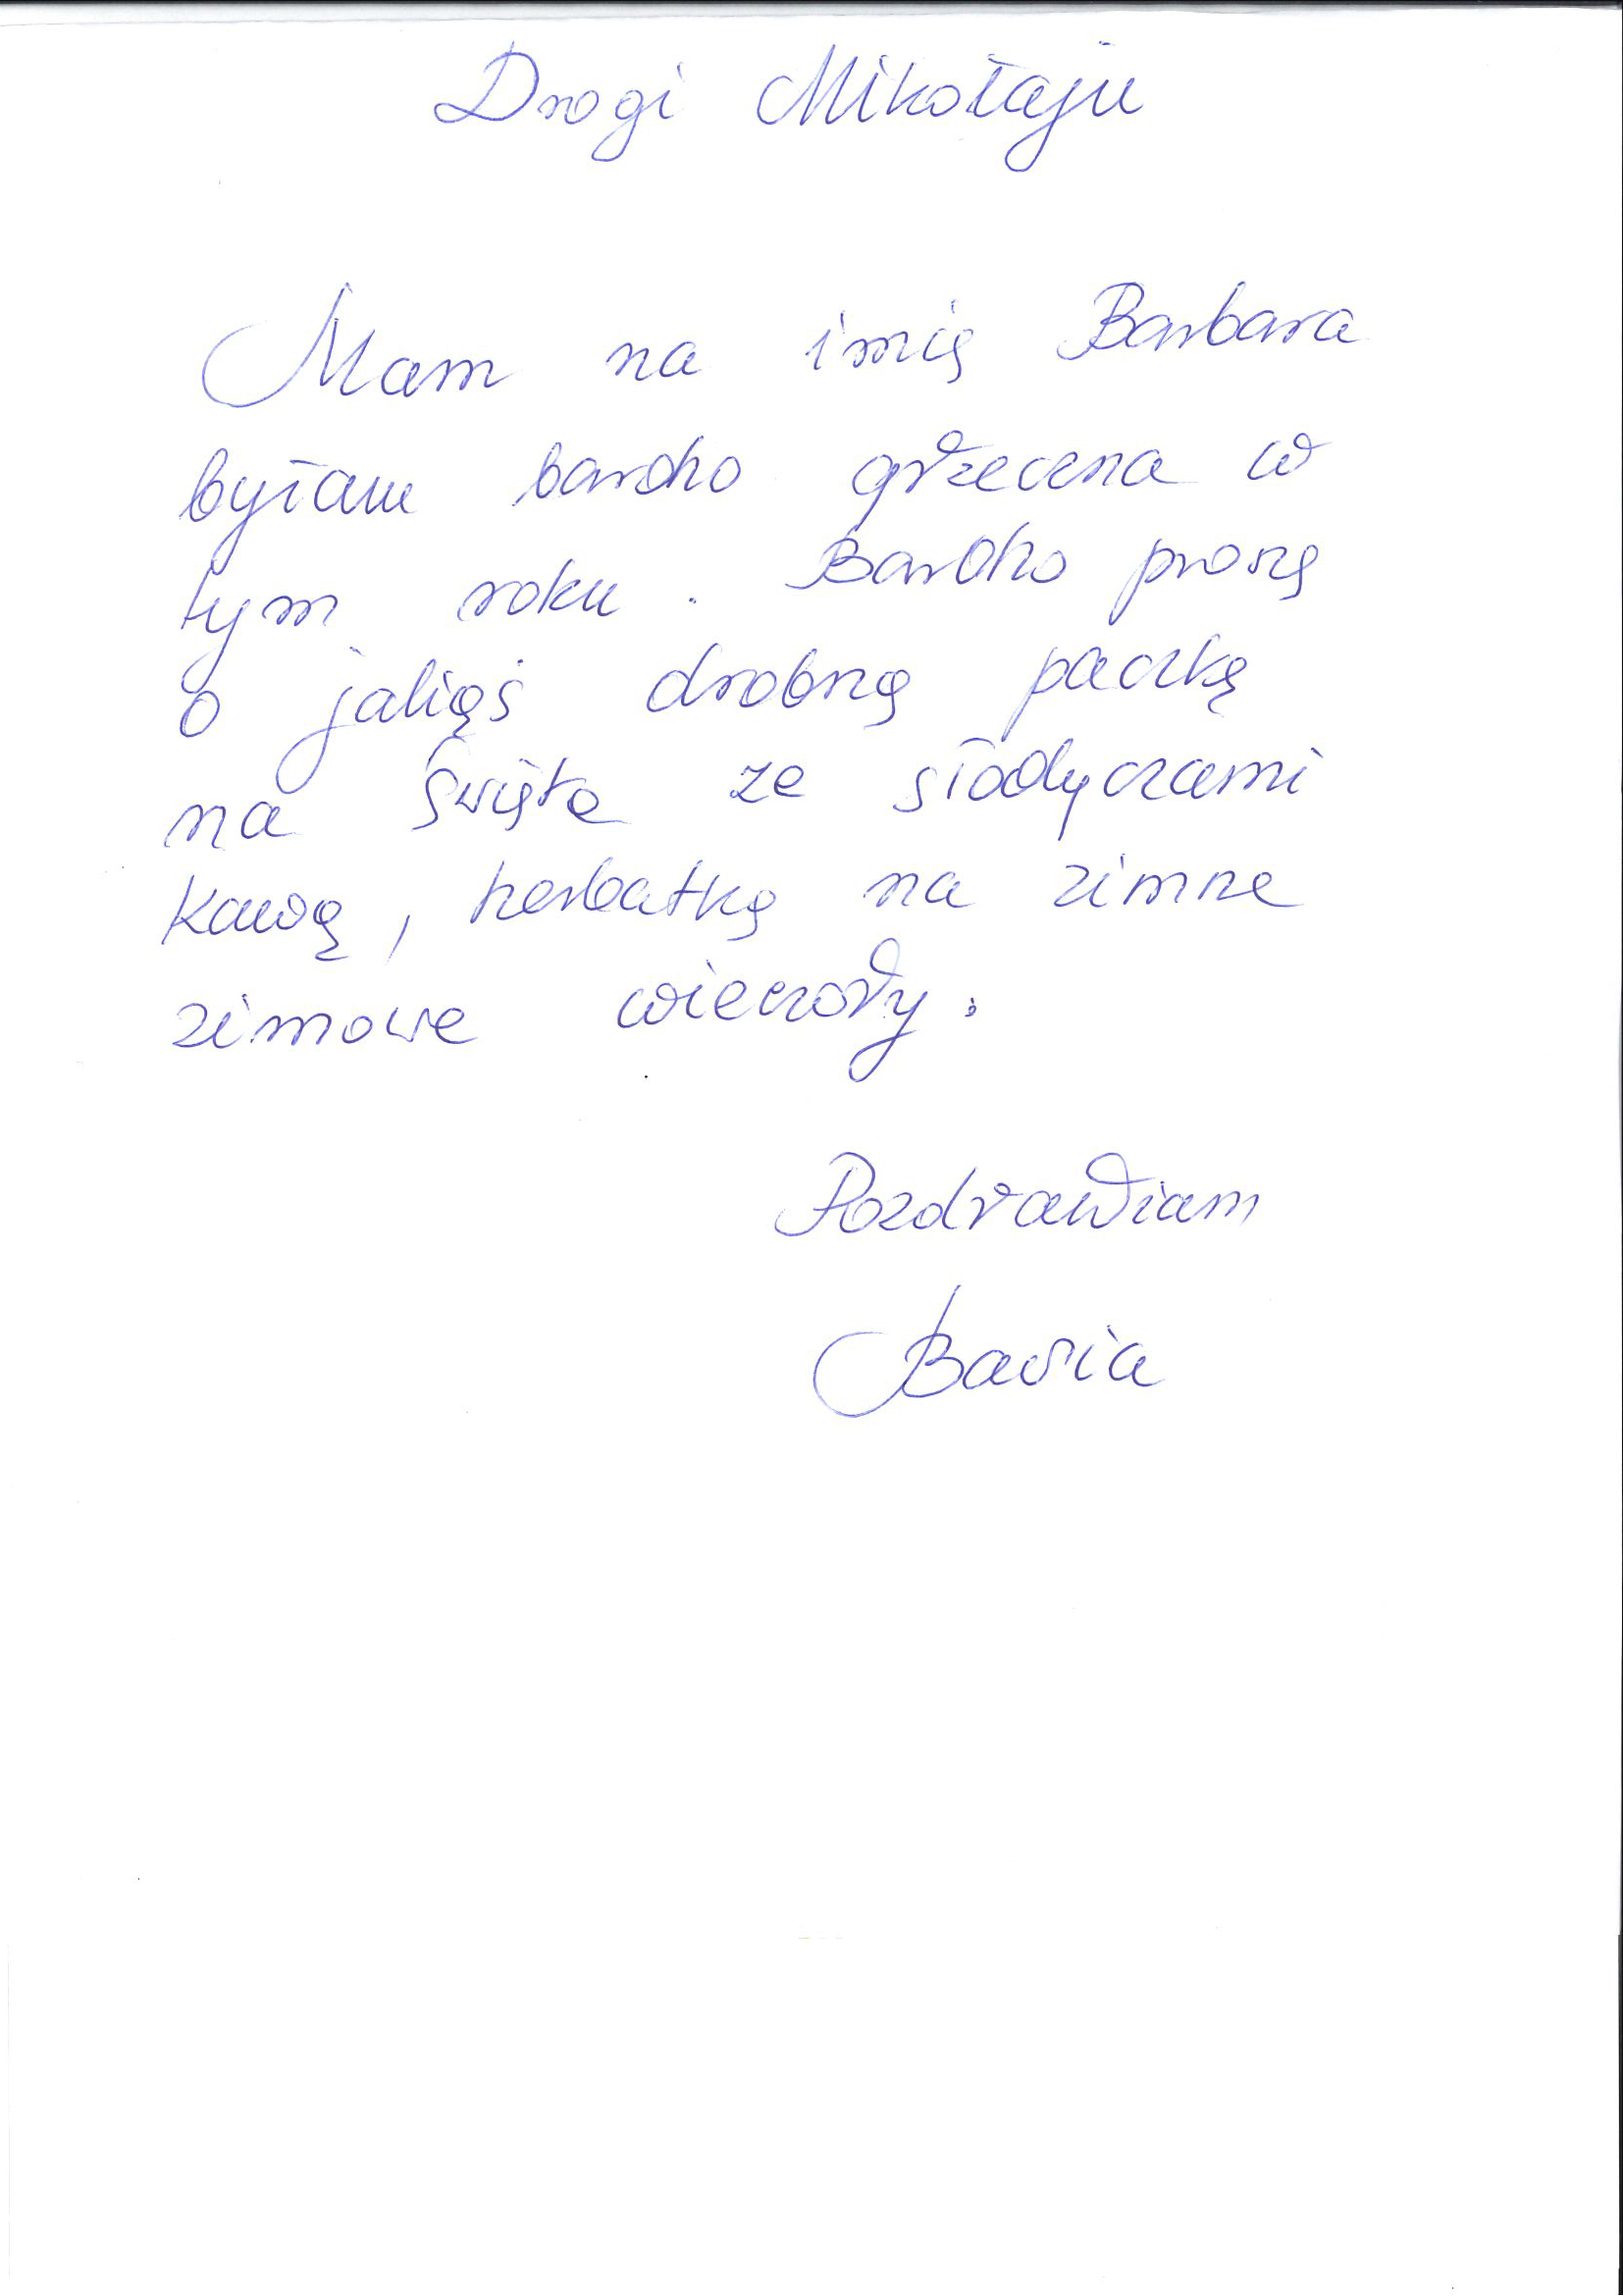 Drogi Mikołaju
Mam na imię Barbara
byłam bardzo grzeczna w
tym roku. Bardzo proszę
o jakiąś drobną paczkę
na święta ze słodyczami
kawą, herbatką na zimne
zimowe wieczory.
Pozdrawiam
Basia